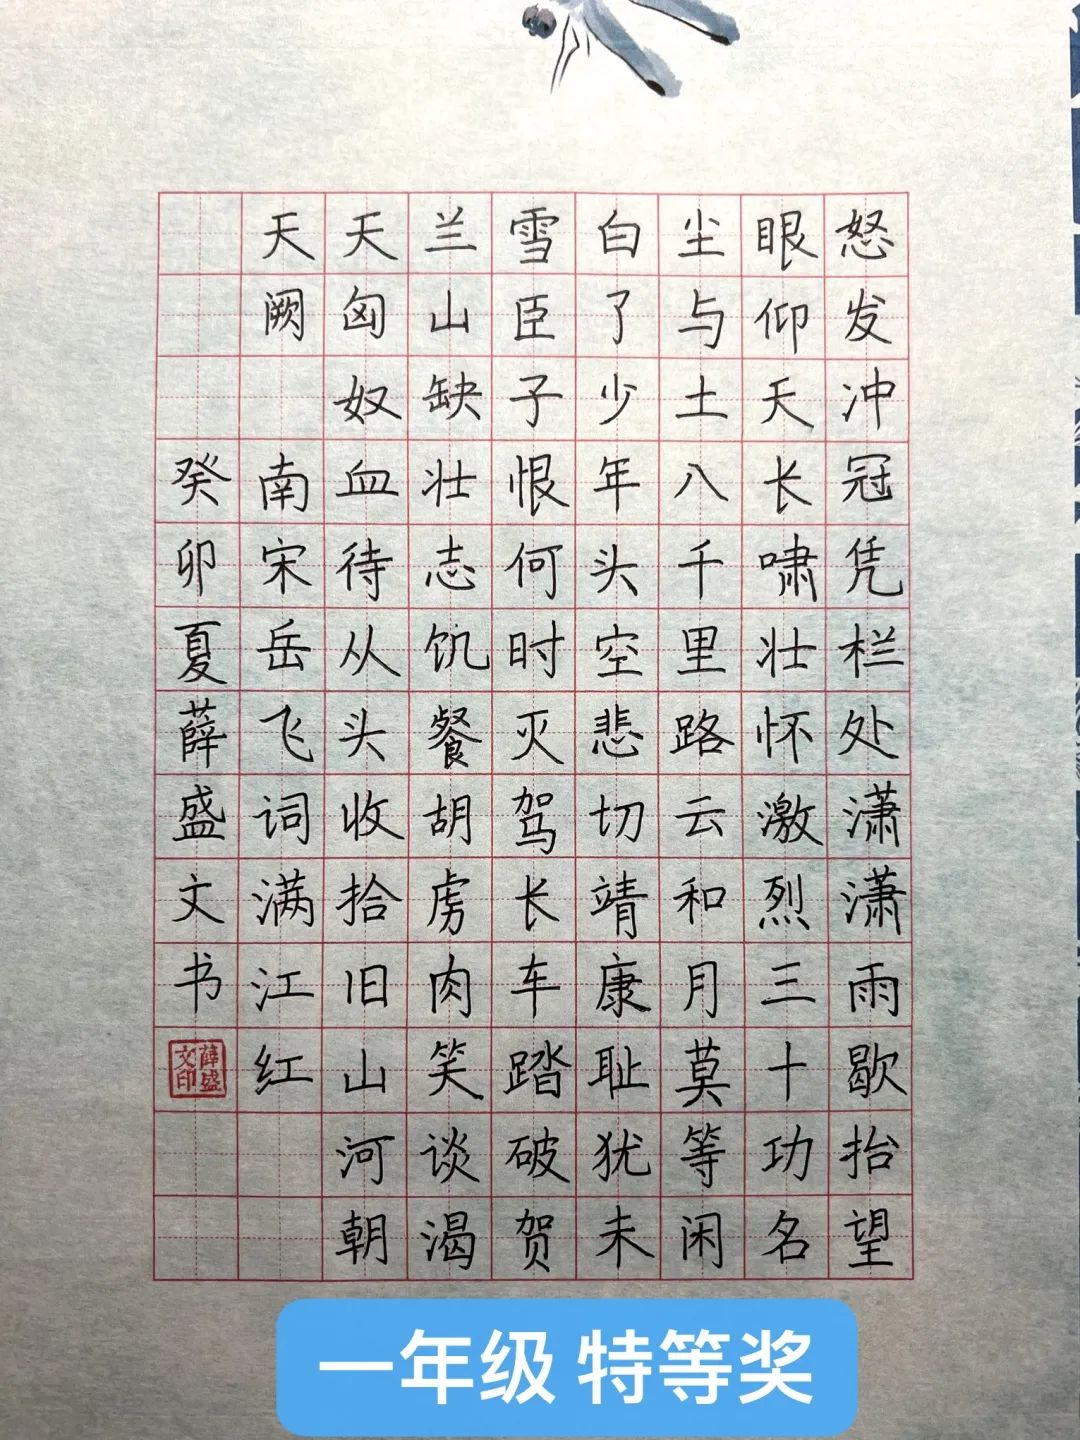 怒发冲冠凭栏处潇潇雨歇抬望
眼仰天长啸壮怀激烈三十功名
尘与土八千里路云和月莫等闲
白了少年头空悲切靖康耻犹未
雪臣子恨何时灭驾长车踏破贺
兰山缺壮志饥餐胡虏肉笑谈渴
天匈奴血待从头收拾旧山河朝
天阙 南宋岳飞词满江红
癸卯夏薛盛文书
薛盛文印
一年级 特等奖